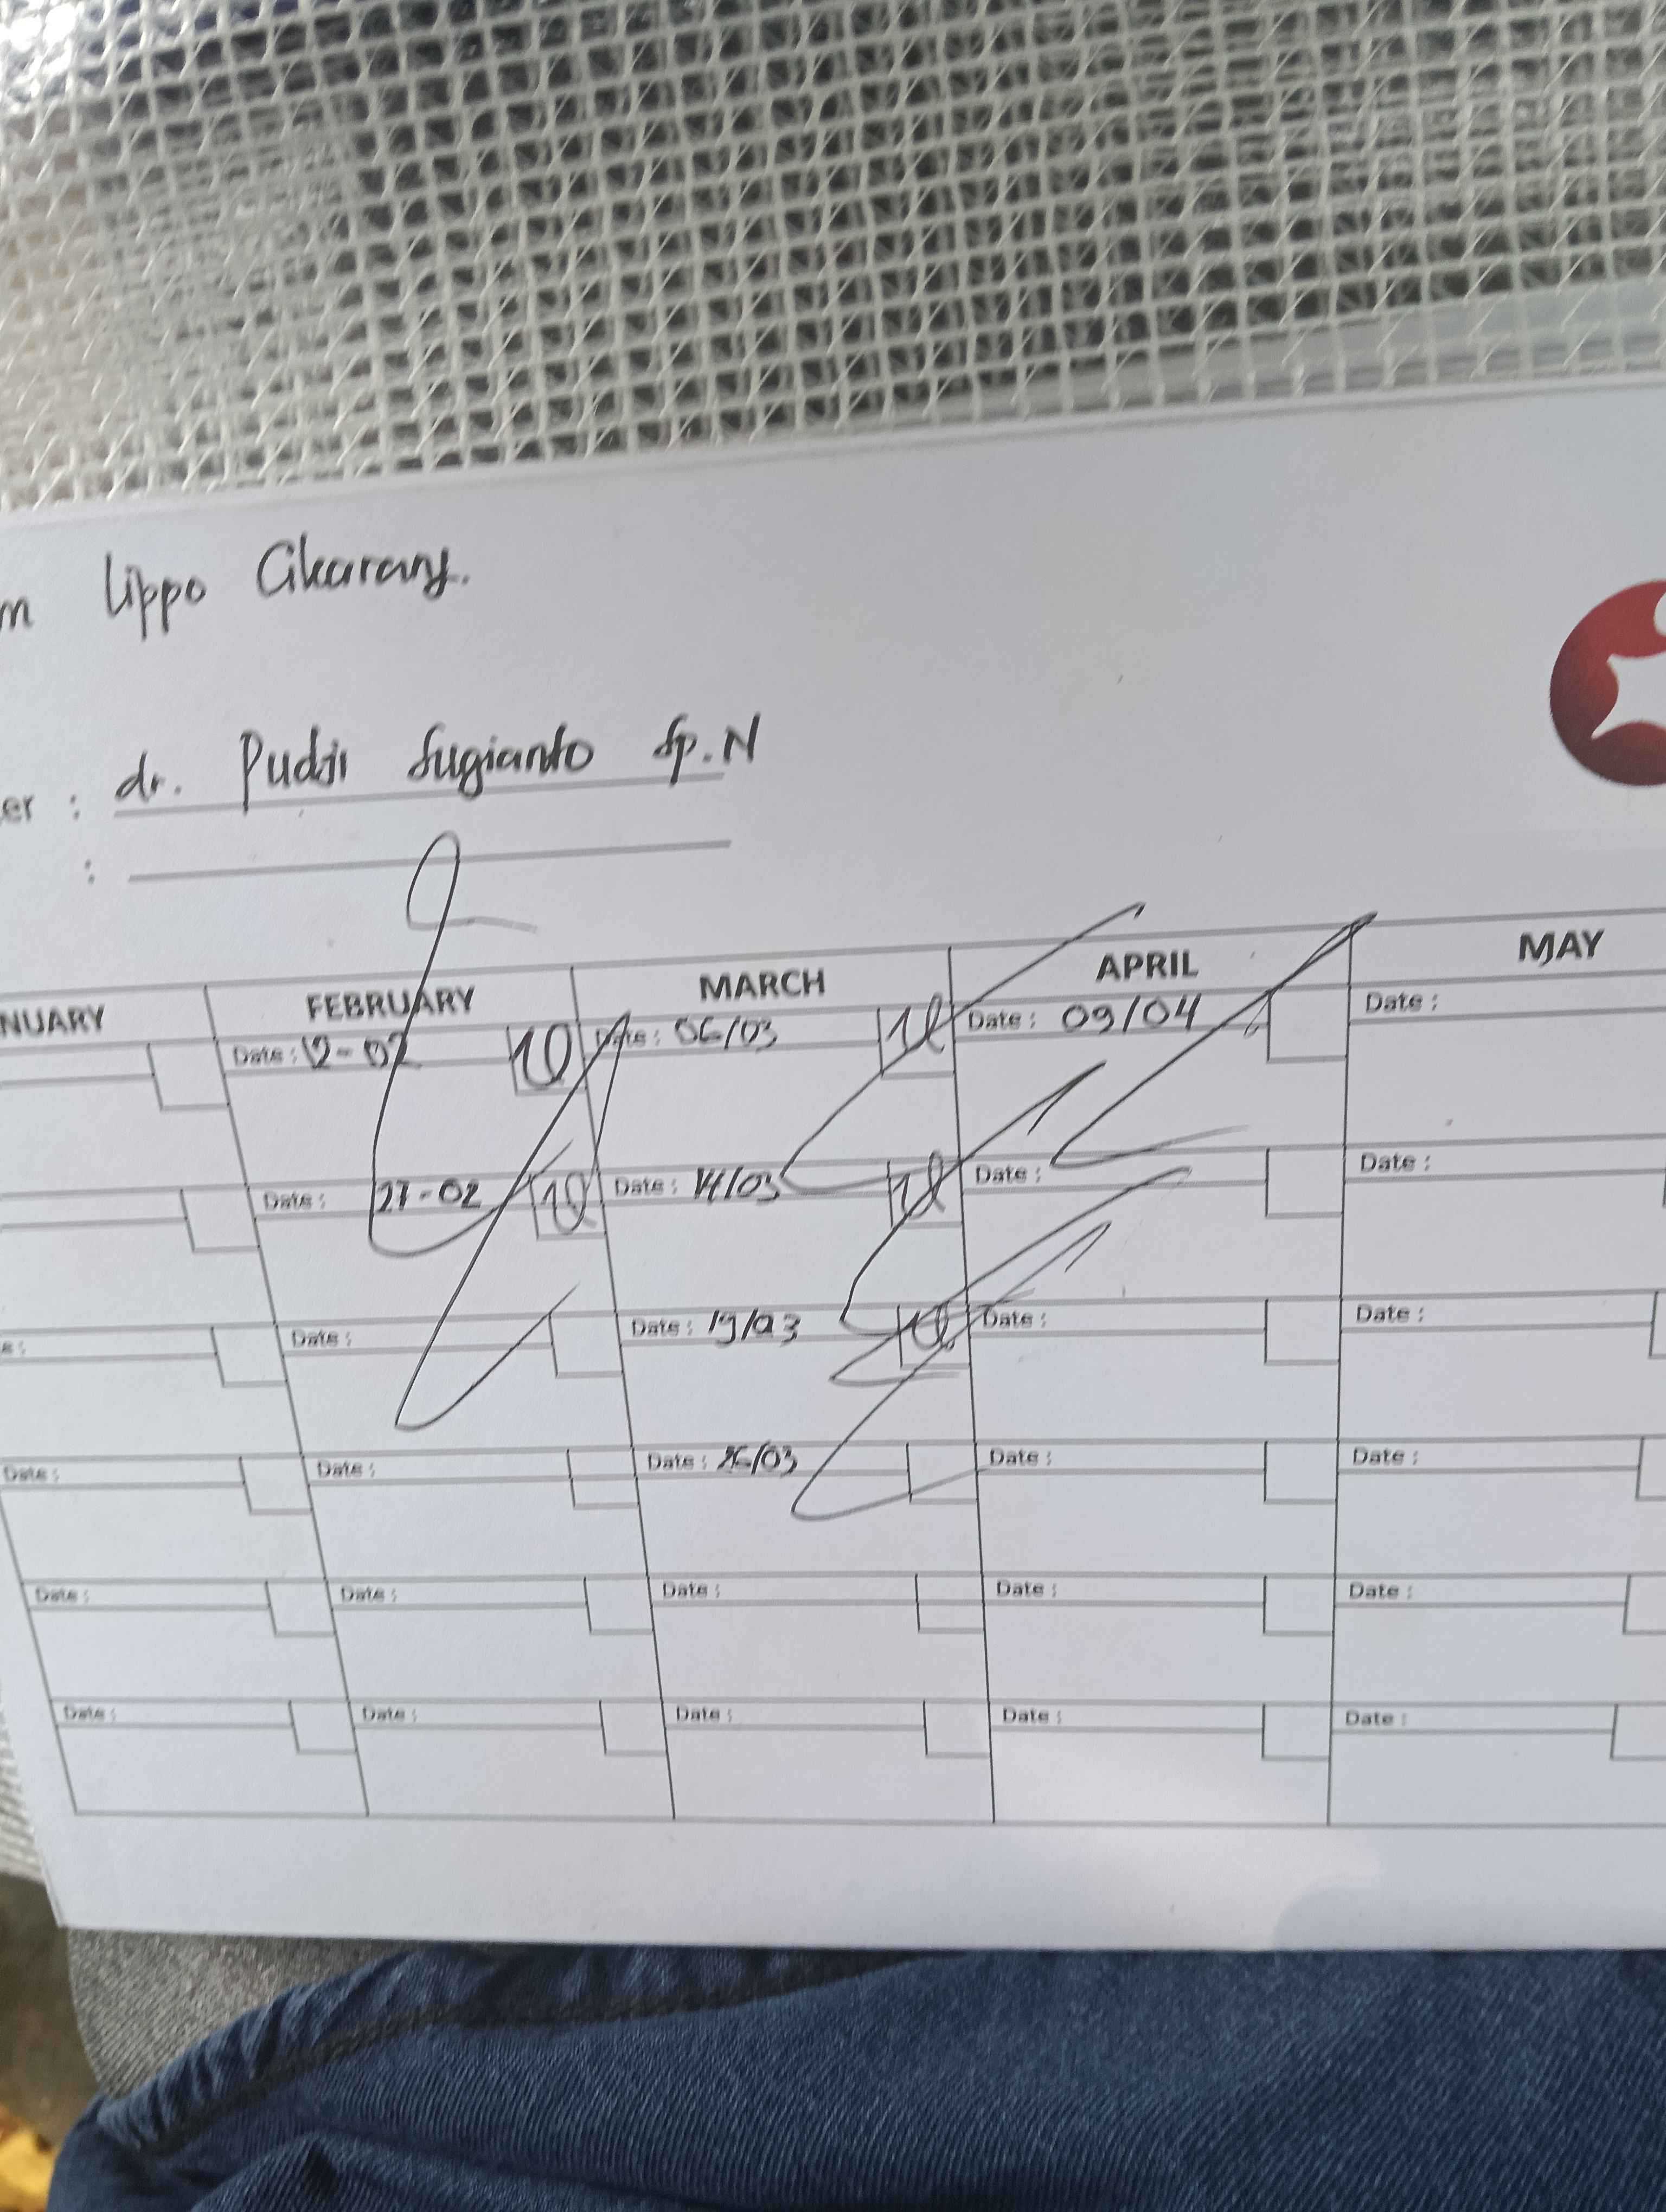 m Lippo Cikarang.
er : dr. Pudji Sugianto Sp.N
:
NUARY FEBRUARY MARCH APRIL MAY
Date : 12-02 Date : 06/03 Date : 09/04 Date :
Date : 27-02 Date : 14/03 Date : Date :
Date : Date : 19/03 Date : Date :
Date : Date : Date : 26/03 Date : Date :
Date : Date : Date : Date : Date :
Date : Date : Date : Date : Date :